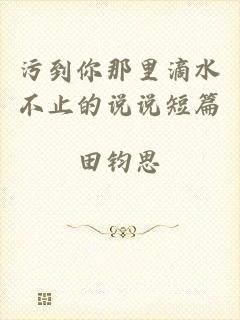 污到你那里滴水
不止的说说短篇
田钧思